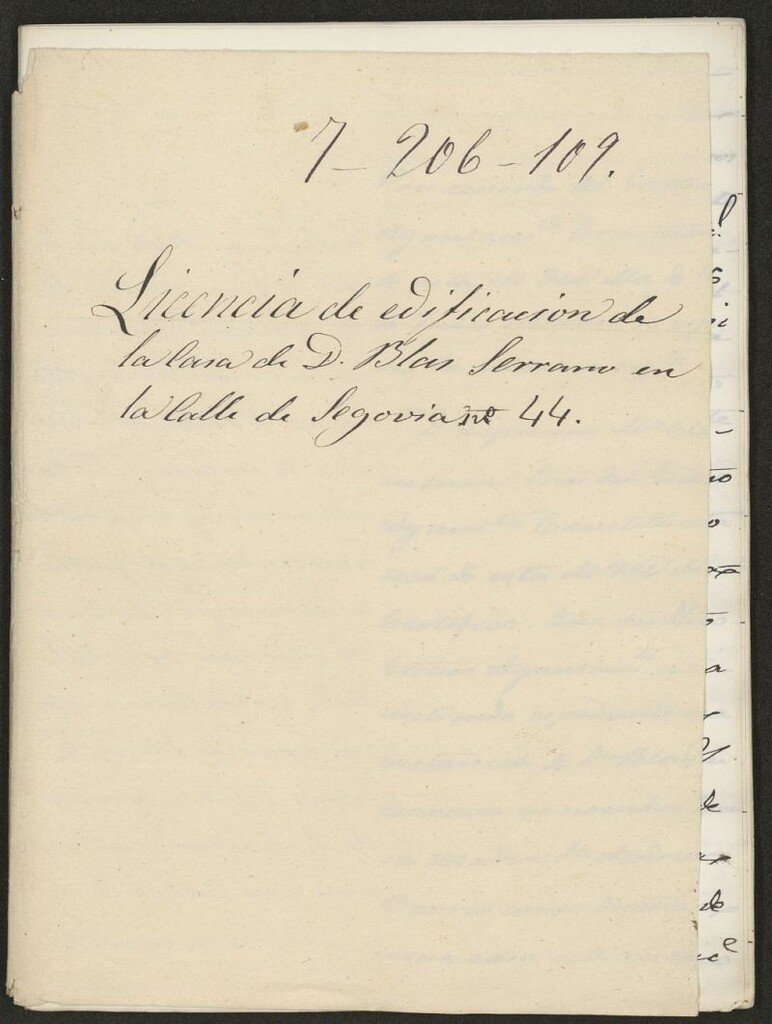 7-206-109.
Licencia de edificacion de
la Casa de D. Blas Serrano en
la Calle de Segovia nº 44.